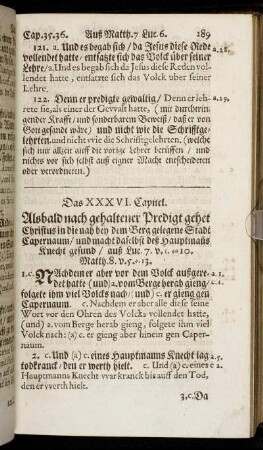 Cap. 35. 36. Auß Matth. 7 Luc. 6. 189
121. a. Und es begab sich/ da Jesus diese Rede
vollendet hatte/ entsatzte sich das Volck über seiner
Lehre/a. Und es begab sich da Jesus diese Reden vol-
lendet hatte, entsatzte sich das Volck über seiner
Lehre.
122. Denn er predigte gewaltig/ Denn er leh-
rete sie, als einer der Gevvalt hatte, (mit durchdrin-
gender Krafft/ und sonderbarem Beweiß/ daß er von
Gott gesandt wäre) und nicht wie die Schrifftge-
lehrten. und nicht vvie die Schrifftgelehrten, (welche
sich nur allzeit auff die vorige Lehrer beriffen/ und
nichts vor sich selbst auß eigner Macht entscheideten
oder verordneten.)
a. 28.
a. 29.
Das XXXVI. Capitel.
Alsbald nach gehaltener Predigt gehet
Christus in die nah bey dem Berg gelegene Stadt
Capernaum/ und macht daselbst deß Hauptmañs
Knecht gesund/ auß Luc. 7. v. 1.--10.
Matth. 8. v. 5.--13.
1. c. Nachdem er aber vor dem Volck außgere-
det hatte (und) a. vom Berge herab gieng/
folgete ihm viel Volcks nach/ (und) c. er gieng gen
Capernaum. c. Nachdem er aber alle diese seine
Wort vor den Ohren des Volcks vollendet hatte,
(und) a. vom Berge herab gieng, folgete ihm viel
Volck nach: (a) c. er gieng aber hinein gen Caper-
naum.
2. c. Und (a) c. eines Hauptmanns Knecht lag
todkranck/ den er werth hielt. c. Und (a) c. eines
Hauptmanns Knecht war kranck biss auff den Tod,
den er vverth hielt.
3. c. Da